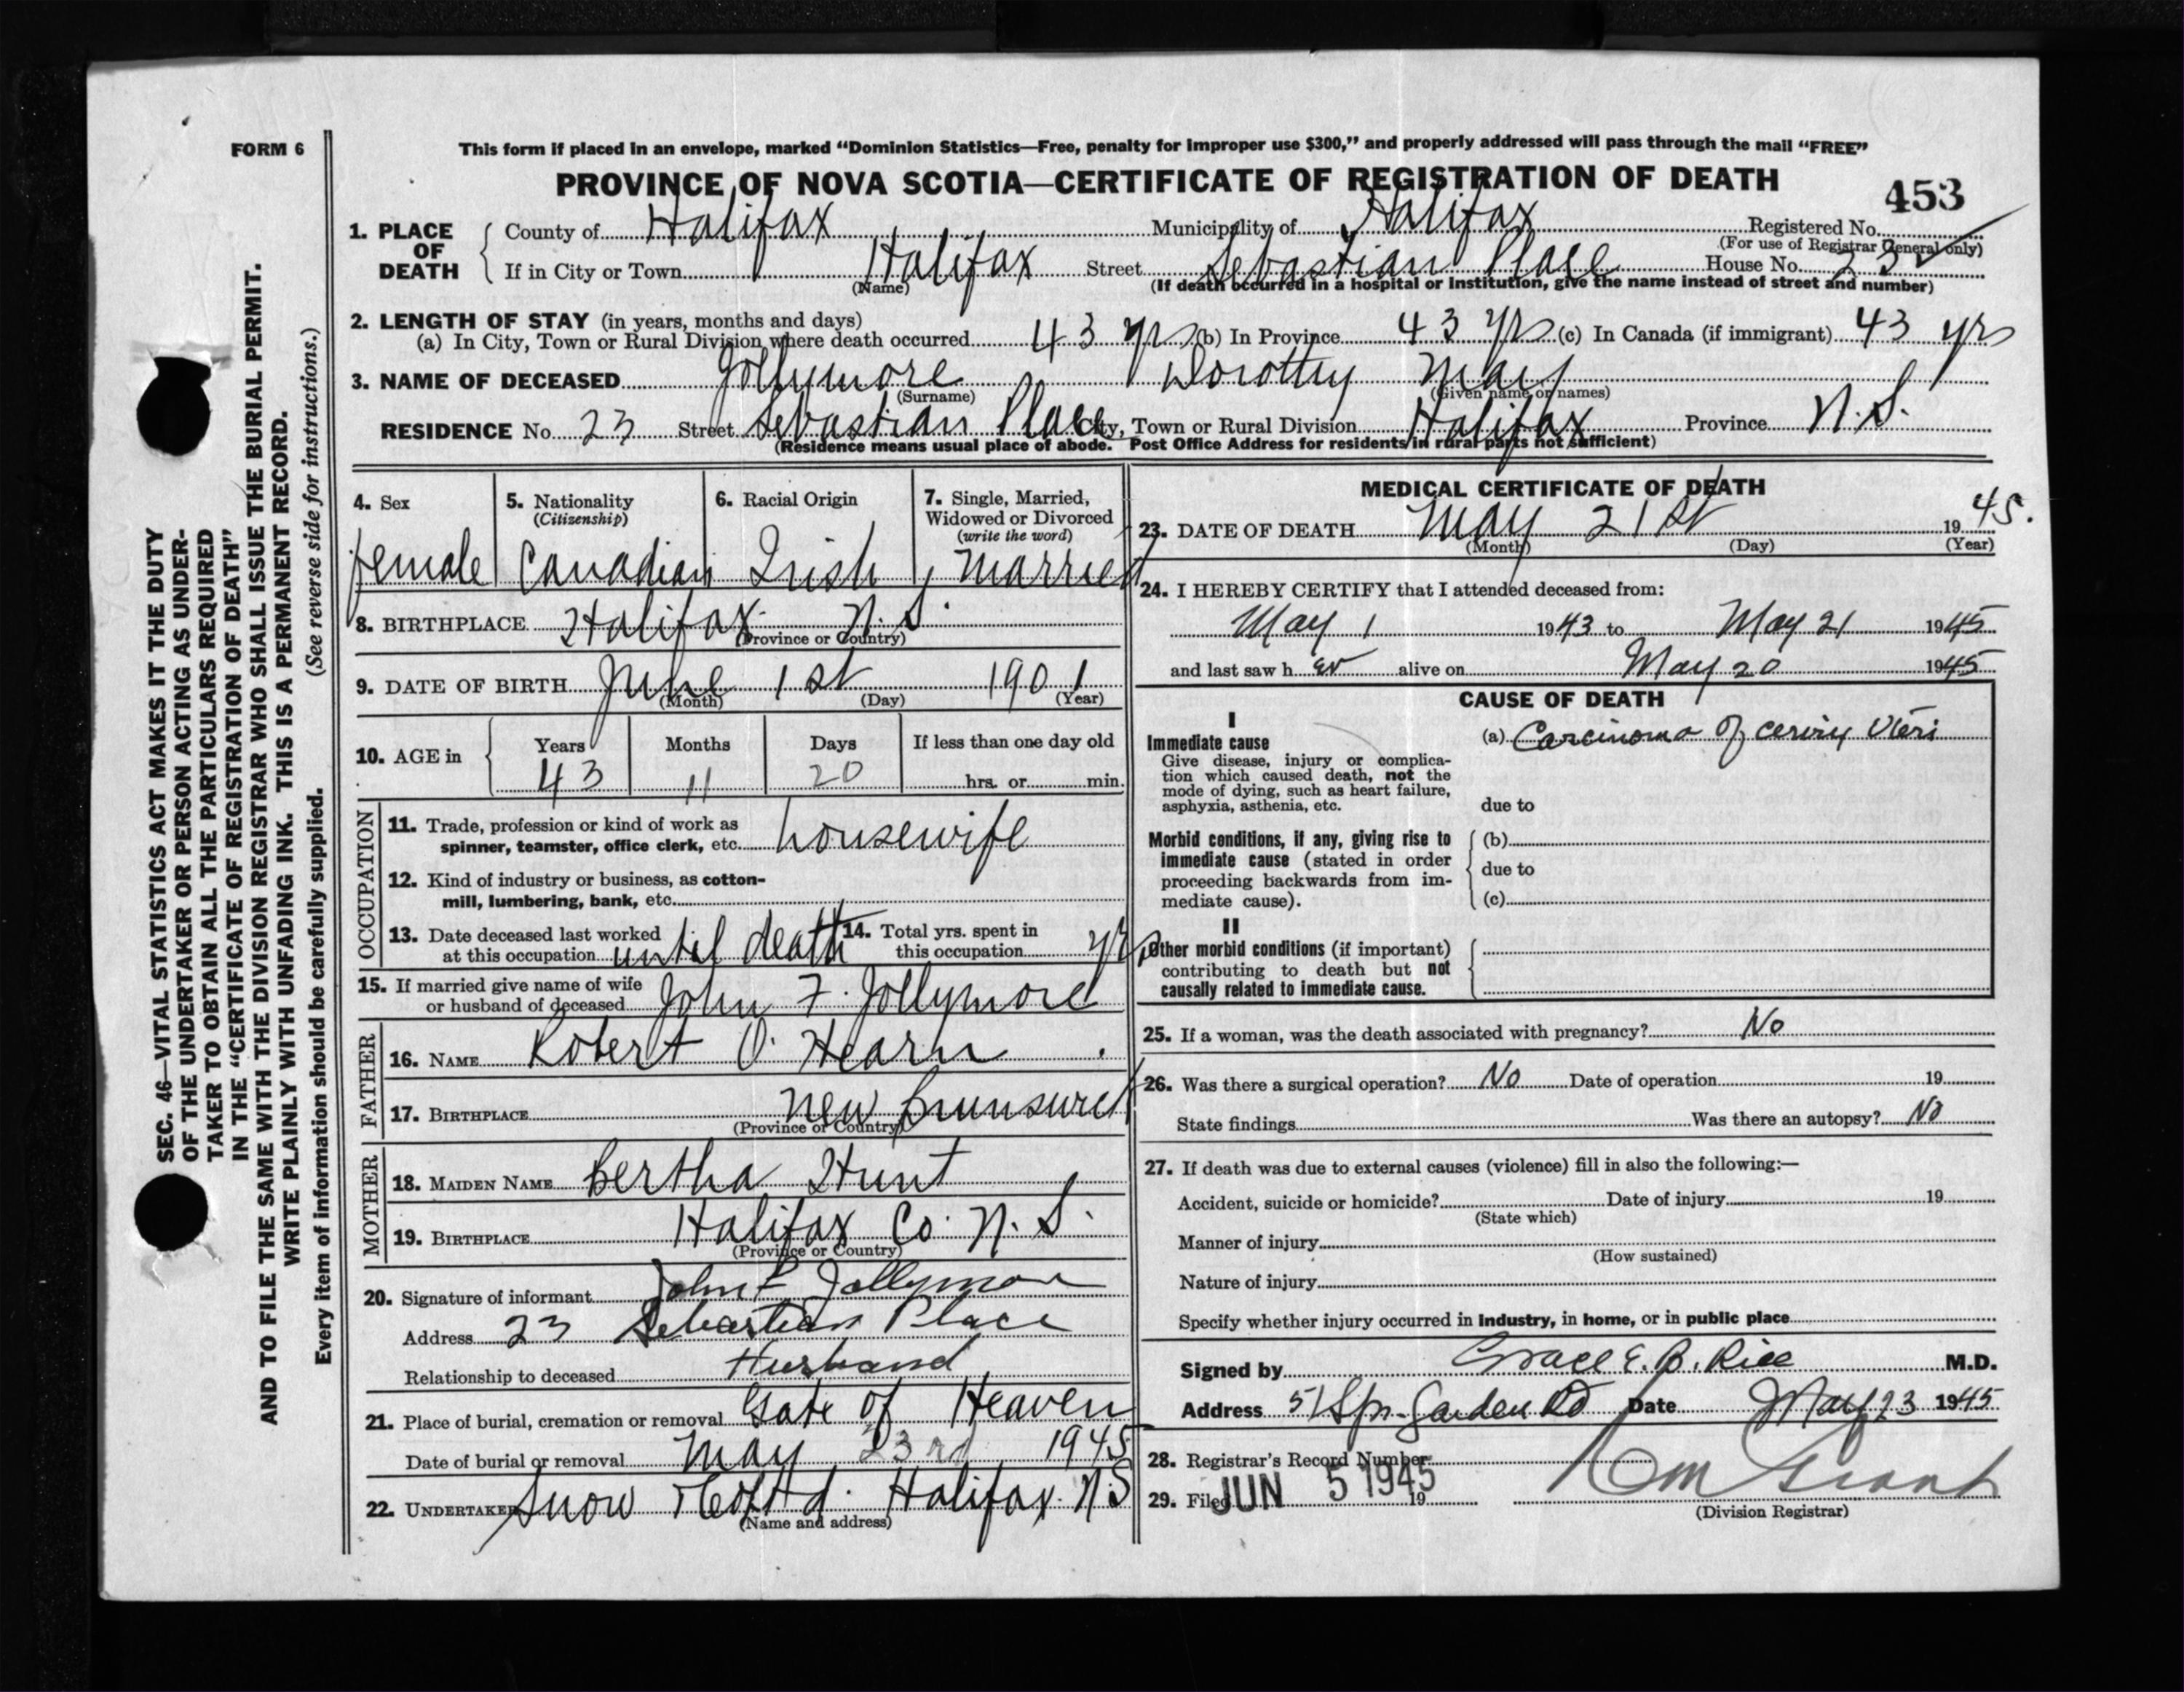 FORM 6
This form if placed in an envelope, marked “Dominion Statistics—Free, penalty for improper use $300,” and properly addressed will pass through the mail “FREE”
PROVINCE OF NOVA SCOTIA—CERTIFICATE OF REGISTRATION OF DEATH
453
1. PLACE OF DEATH
County of Halifax Municipality of Halifax Registered No.
(For use of Registrar General only)
If in City or Town Halifax Street Sebastian Place House No. 23
(Name) (If death occurred in a hospital or institution, give the name instead of street and number)
2. LENGTH OF STAY (in years, months and days)
(a) In City, Town or Rural Division where death occurred 43 yrs (b) In Province 43 yrs (c) In Canada (if immigrant) 43 yrs
3. NAME OF DECEASED Jollymore Dorothy Mary
(Surname) (Given name or names)
RESIDENCE No. 23 Street Sebastian Place City, Town or Rural Division Halifax Province N.S.
(Residence means usual place of abode. Post Office Address for residents in rural parts not sufficient)
4. Sex
female
5. Nationality
(Citizenship)
Canadian
6. Racial Origin
Irish
7. Single, Married,
Widowed or Divorced
(write the word)
Married
8. BIRTHPLACE Halifax N.S.
(Province or Country)
9. DATE OF BIRTH June 1st 1901
(Month) (Day) (Year)
10. AGE in
Years Months Days If less than one day old
43 11 20 hrs. or min.
OCCUPATION
11. Trade, profession or kind of work as
spinner, teamster, office clerk, etc. housewife
12. Kind of industry or business, as cotton-
mill, lumbering, bank, etc.
13. Date deceased last worked
at this occupation until death
14. Total yrs. spent in
this occupation yrs
15. If married give name of wife
or husband of deceased John F. Jollymore
FATHER
16. NAME Robert O. Hearn
17. BIRTHPLACE New
(Province or Country)
MOTHER
18. MAIDEN NAME Bertha Hunt
19. BIRTHPLACE Halifax Co. N.S.
(Province or Country)
20. Signature of informant John F Jollymore
Address 23 Sebastian Place
Relationship to deceased Husband
21. Place of burial, cremation or removal Gate of Heaven
Date of burial or removal May 23rd 1945
22. UNDERTAKER Snow & Co Ltd. Halifax N.S
(Name and address)
MEDICAL CERTIFICATE OF DEATH
23. DATE OF DEATH May 21st 1945.
(Month) (Day) (Year)
24. I HEREBY CERTIFY that I attended deceased from:
May 1 1943 to May 21 1945
and last saw her alive on May 20 1945
CAUSE OF DEATH
I
Immediate cause
Give disease, injury or complica-
tion which caused death, not the
mode of dying, such as heart failure,
asphyxia, asthenia, etc.
(a) Carcinoma of cervix Uteri
due to
Morbid conditions, if any, giving rise to
immediate cause (stated in order
proceeding backwards from im-
mediate cause).
(b)
due to
(c)
II
Other morbid conditions (if important)
contributing to death but not
causally related to immediate cause.
25. If a woman, was the death associated with pregnancy? No
26. Was there a surgical operation? No Date of operation 19
State findings Was there an autopsy? No
27. If death was due to external causes (violence) fill in also the following:—
Accident, suicide or homicide? Date of injury 19
(State which)
Manner of injury
(How sustained)
Nature of injury
Specify whether injury occurred in industry, in home, or in public place
Signed by Grace E. B. Rice M.D.
Address 51 Spr. Garden Rd Date May 23 1945
28. Registrar's Record Number
29. Filed JUN 5 1945 19
(Division Registrar)
SEC. 46—VITAL STATISTICS ACT MAKES IT THE DUTY
OF THE UNDERTAKER OR PERSON ACTING AS UNDER-
TAKER TO OBTAIN ALL THE PARTICULARS REQUIRED
IN THE “CERTIFICATE OF REGISTRATION OF DEATH”
AND TO FILE THE SAME WITH THE DIVISION REGISTRAR WHO SHALL ISSUE THE BURIAL PERMIT.
WRITE PLAINLY WITH UNFADING INK. THIS IS A PERMANENT RECORD.
Every item of information should be carefully supplied. (See reverse side for instructions.)